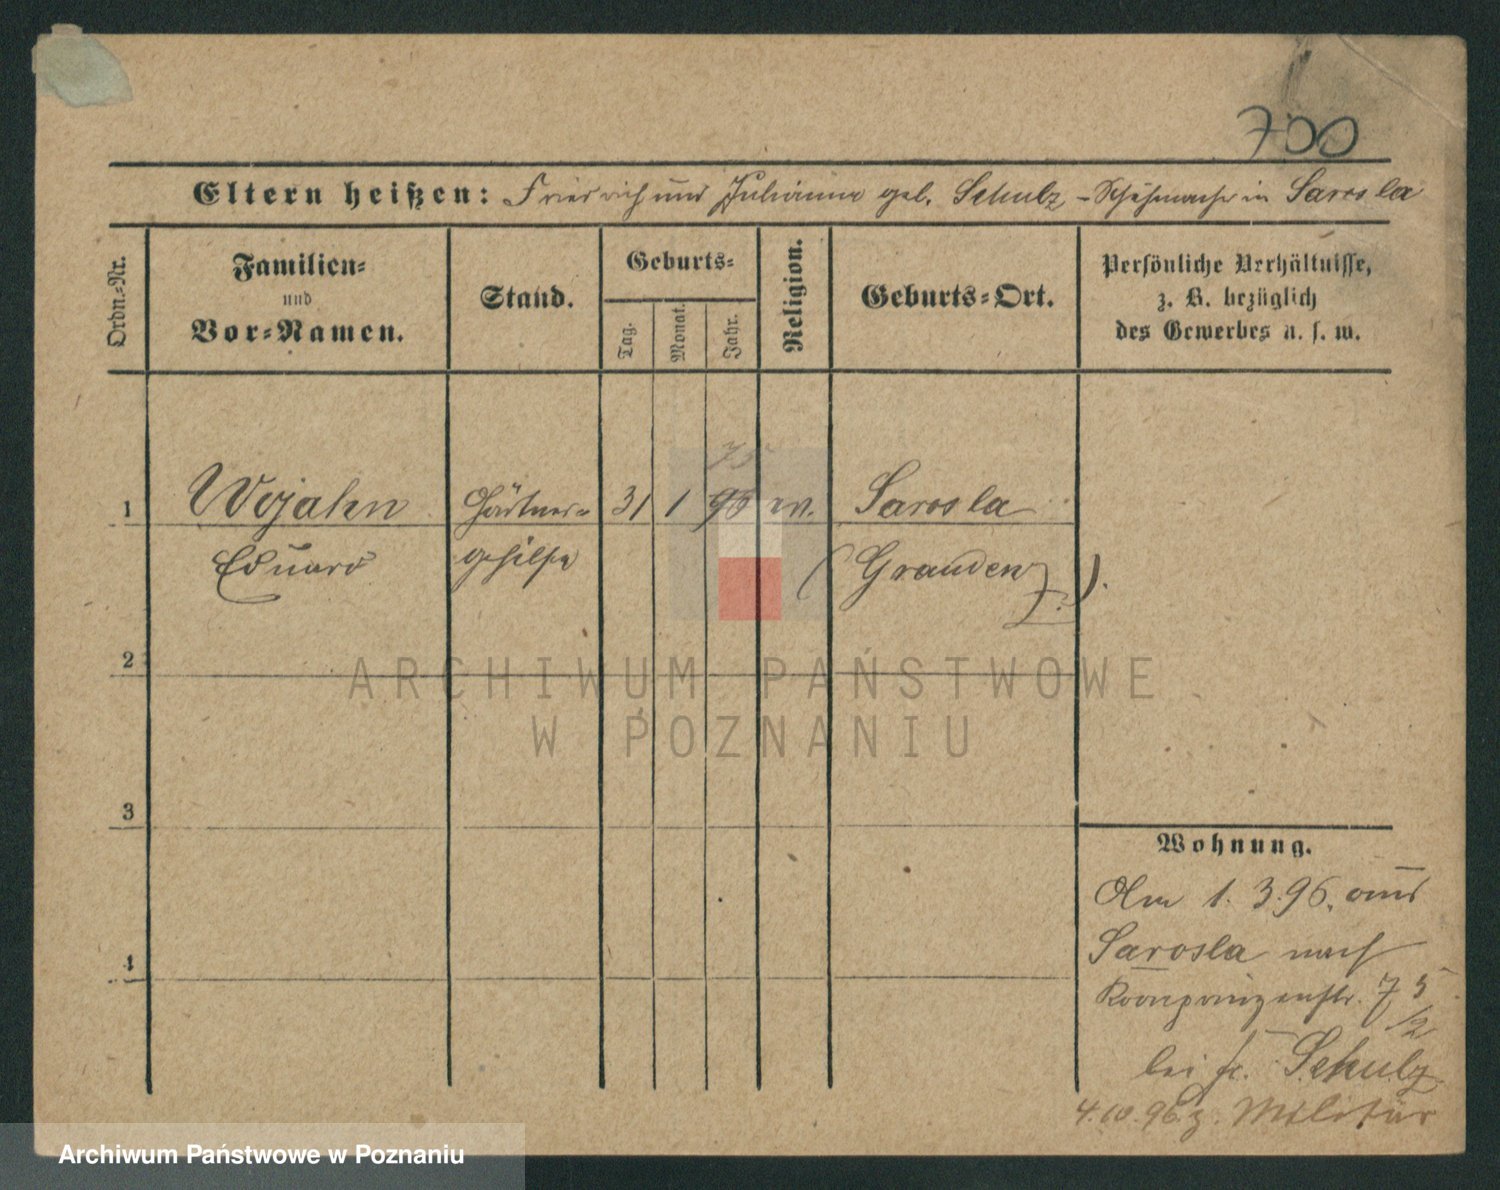 700
Eltern heißen: Friedrich und Julianna geb. Schulz - Schuhmacher in Sarosla
Ordn.-Nr.
Familien-
und
Vor-Namen.
Stand.
Geburts-
Tag.
Monat.
Jahr.
Religion.
Geburts-Ort.
Persönliche Verhältnisse,
z. B. bezüglich
des Gewerbes u. s. w.
75
1 Wojahn Gärtner- 31 1 96 ev. Sarosla
Eduard gehilfe (Graudenz).
2
ARCHIWUM PAŃSTWOWE
W POZNANIU
3
Wohnung.
Am 1. 3. 96. aus
Sarosla nach
4
Kronprinzenstr. 75
/2
bei Fr. Schulz
4.10.96 z. Militär
Archiwum Państwowe w Poznaniu